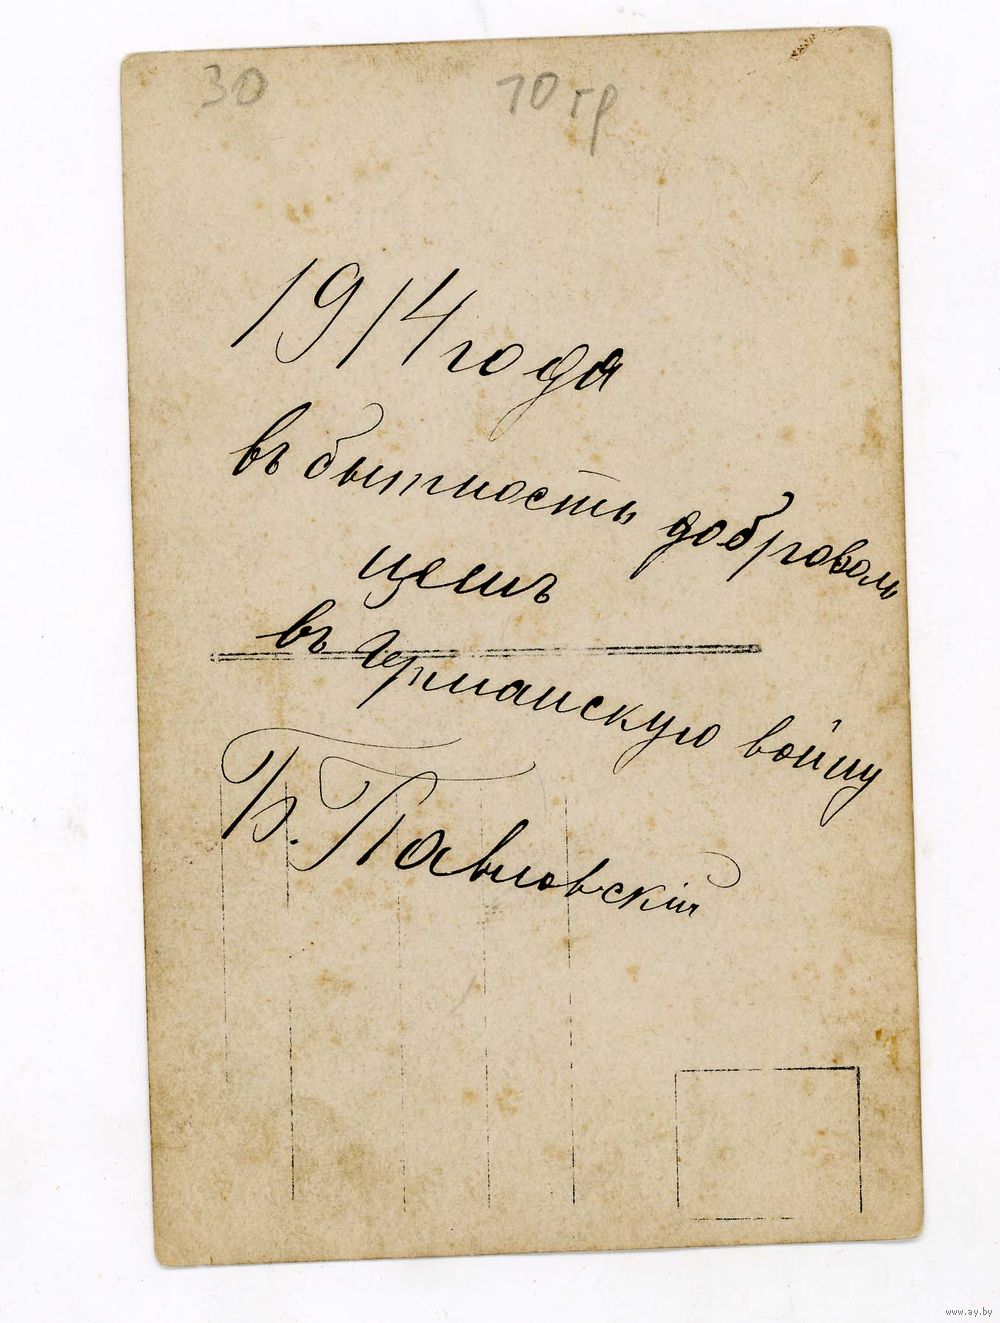 30 10 гр
1914 года
въ бытность доброволь
цемъ
въ Германскую войну
Б. Павловскій
www.ay.by